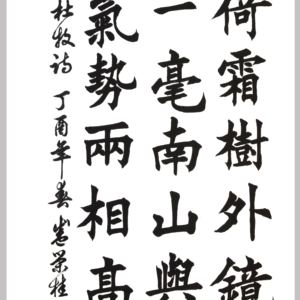 倚霜樹外鏡
一毫南山與
氣勢兩相高
杜牧詩 丁酉年春